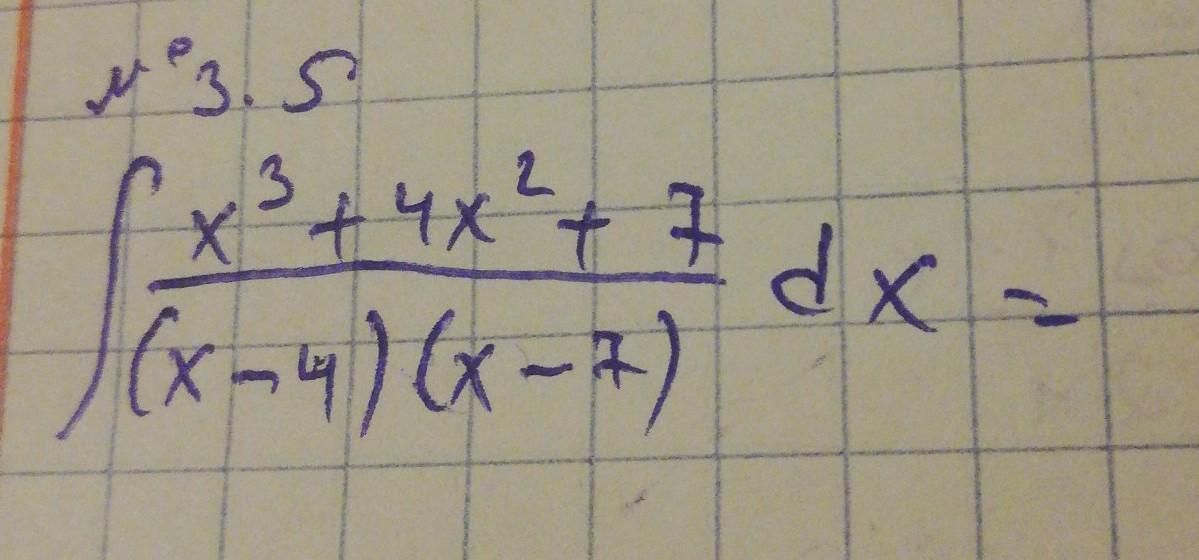 № 3.5
∫ (x³ + 4x² + 7) / ((x-4)(x-7)) dx =